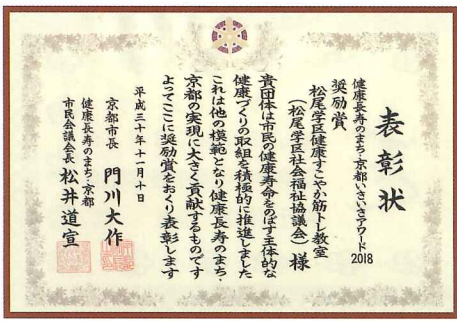 表彰状
健康長寿のまち・京都いきいきアワード2018
奨励賞
松尾学区健康すこやか筋トレ教室
（松尾学区社会福祉協議会）様
貴団体は市民の健康寿命をのばす主体的な
健康づくりの取組を積極的に推進しました
これは他の模範となり健康長寿のまち・
京都の実現に大きく貢献するものです
よってここに奨励賞をおくり表彰します
平成三十年十一月十日
京都市長 門川大作
健康長寿のまち・京都
市民会議会長 松井道宣